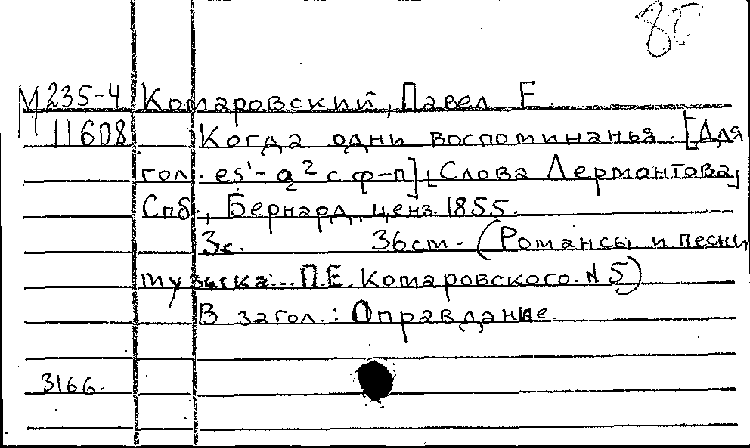 80
М 235-4 Комаровский, Павел Е.
11608 Когда одни воспоминанья. [Для
гол. es¹-a² с ф-п], [Слова Лермонтова]
Спб., Бернард, ценз. 1855.
3с. 36см. (Романсы и песни
музыка П.Е. Комаровского. N 5)
В загол.: Оправдание
3166.